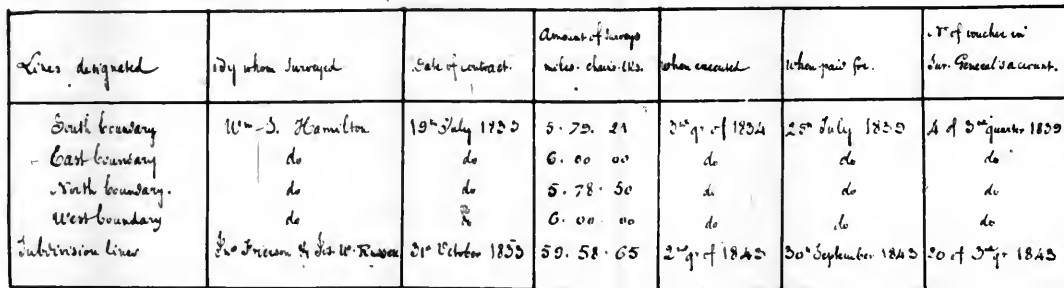 Lines designated | By whom surveyed | Date of contract. | Amount of Surveys miles. chains. lks. | When executed | When paid for. | No of voucher in Sur. General's account.
South boundary | Wm S. Hamilton | 19th July 1833 | 5. 79. 21 | 3rd qr of 1834 | 25th July 1839 | 4 of 3rd quarter 1839
East boundary | do | do | 6. 00 00 | do | do | do
North boundary. | do | do | 5. 78. 50 | do | do | do
West boundary | do | do | 6. 00. 00 | do | do | do
Subdivision lines | Frierson & | 31st October | 59. 58. 65 | 2nd qr of 1843 | 30th September 1843 | 20 of 3rd qr 1843